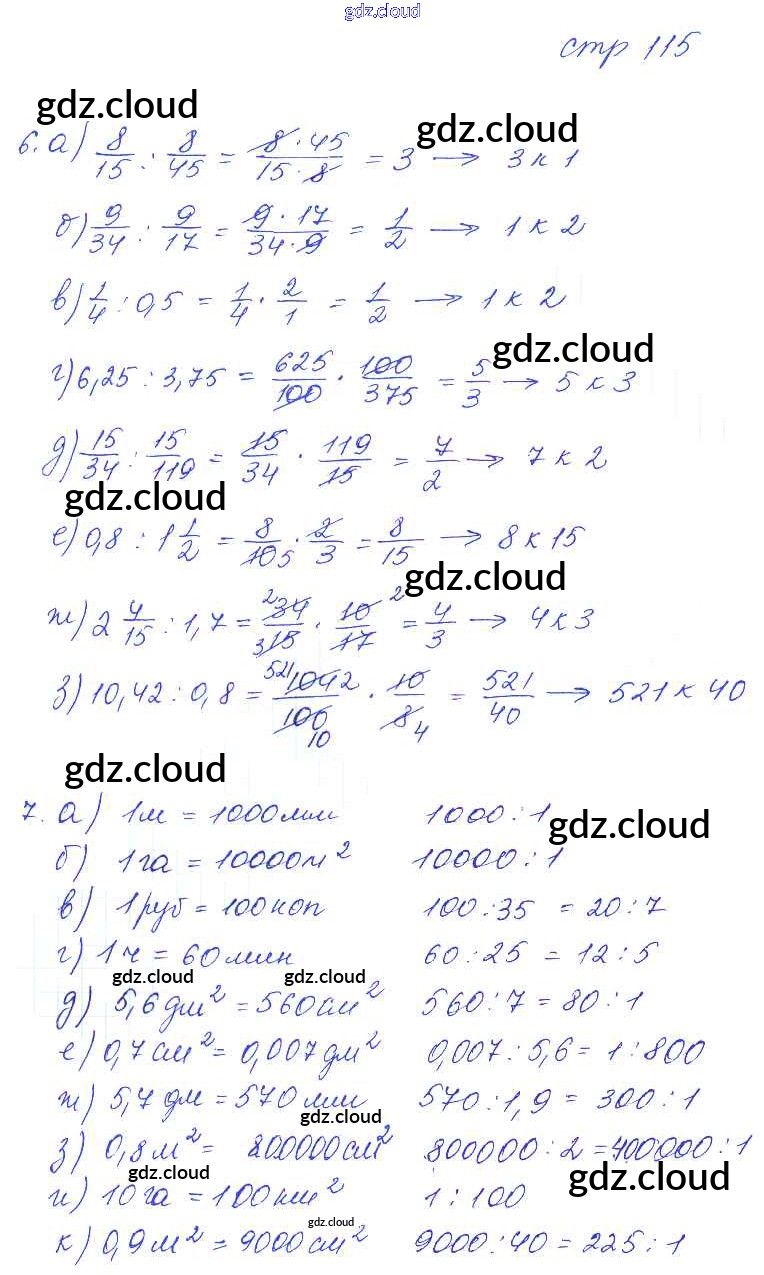 gdz.cloud
стр 115
gdz.cloud
gdz.cloud
6. а) 8/15 : 8/45 = 8·45/15·8 = 3 → 3 к 1
б) 9/34 : 9/17 = 9·17/34·9 = 1/2 → 1 к 2
в) 1/4 : 0,5 = 1/4 · 2/1 = 1/2 → 1 к 2
gdz.cloud
г) 6,25 : 3,75 = 625/100 · 100/375 = 5/3 → 5 к 3
д) 15/34 : 15/119 = 15/34 · 119/15 = 7/2 → 7 к 2
gdz.cloud
е) 0,8 : 1 1/2 = 8/10 5 · 2/3 = 8/15 → 8 к 15
gdz.cloud
ж) 2 4/15 : 1,7 = 2 34/3 15 · 10 2/17 = 4/3 → 4 к 3
з) 10,42 : 0,8 = 521 1042/100 10 · 10/8 4 = 521/40 → 521 к 40
gdz.cloud
7. а) 1м = 1000мм 1000 : 1
gdz.cloud
б) 1га = 10000м² 10000 : 1
в) 1руб = 100коп 100 : 35 = 20 : 7
г) 1ч = 60мин 60 : 25 = 12 : 5
gdz.cloud gdz.cloud
д) 5,6дм² = 560см² 560 : 7 = 80 : 1
е) 0,7см² = 0,007дм² 0,007 : 5,6 = 1 : 800
ж) 5,7дм = 570мм 570 : 1,9 = 300 : 1
gdz.cloud
з) 0,8м² = 800000см² 800000 : 2 = 400000 : 1
gdz.cloud gdz.cloud
и) 10га = 100км² 1 : 100
gdz.cloud
к) 0,9м² = 9000см² 9000 : 40 = 225 : 1